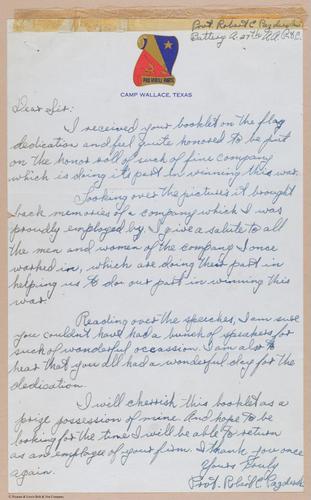 Pvt. Robert C.
Battery A. 27th
CAMP WALLACE, TEXAS
Dear Sir:
I received your booklet on the flag
dedication and feel quite honored to be put
on the honor roll of such of fine company
which is doing its part in winning this war.
Looking over the pictures it brought
back memories of a company which I was
proudly employed by. I give a salute to all
the men and women of the company I once
worked in, which are doing their part in
helping us to do our part in winning this
war.
Reading over the speeches, I am sure
you couldn't have had a bunch of speakers for
such of wonderful occassion. I am also to
hear that you all had a wonderful day for the
dedication.
I will cherrish this booklet as a
prize possession of mine. And hope to be
looking for the time I will be able to return
as an employe of your firm. I thank you once
again.
Yours Truly
Pvt. Robert C.